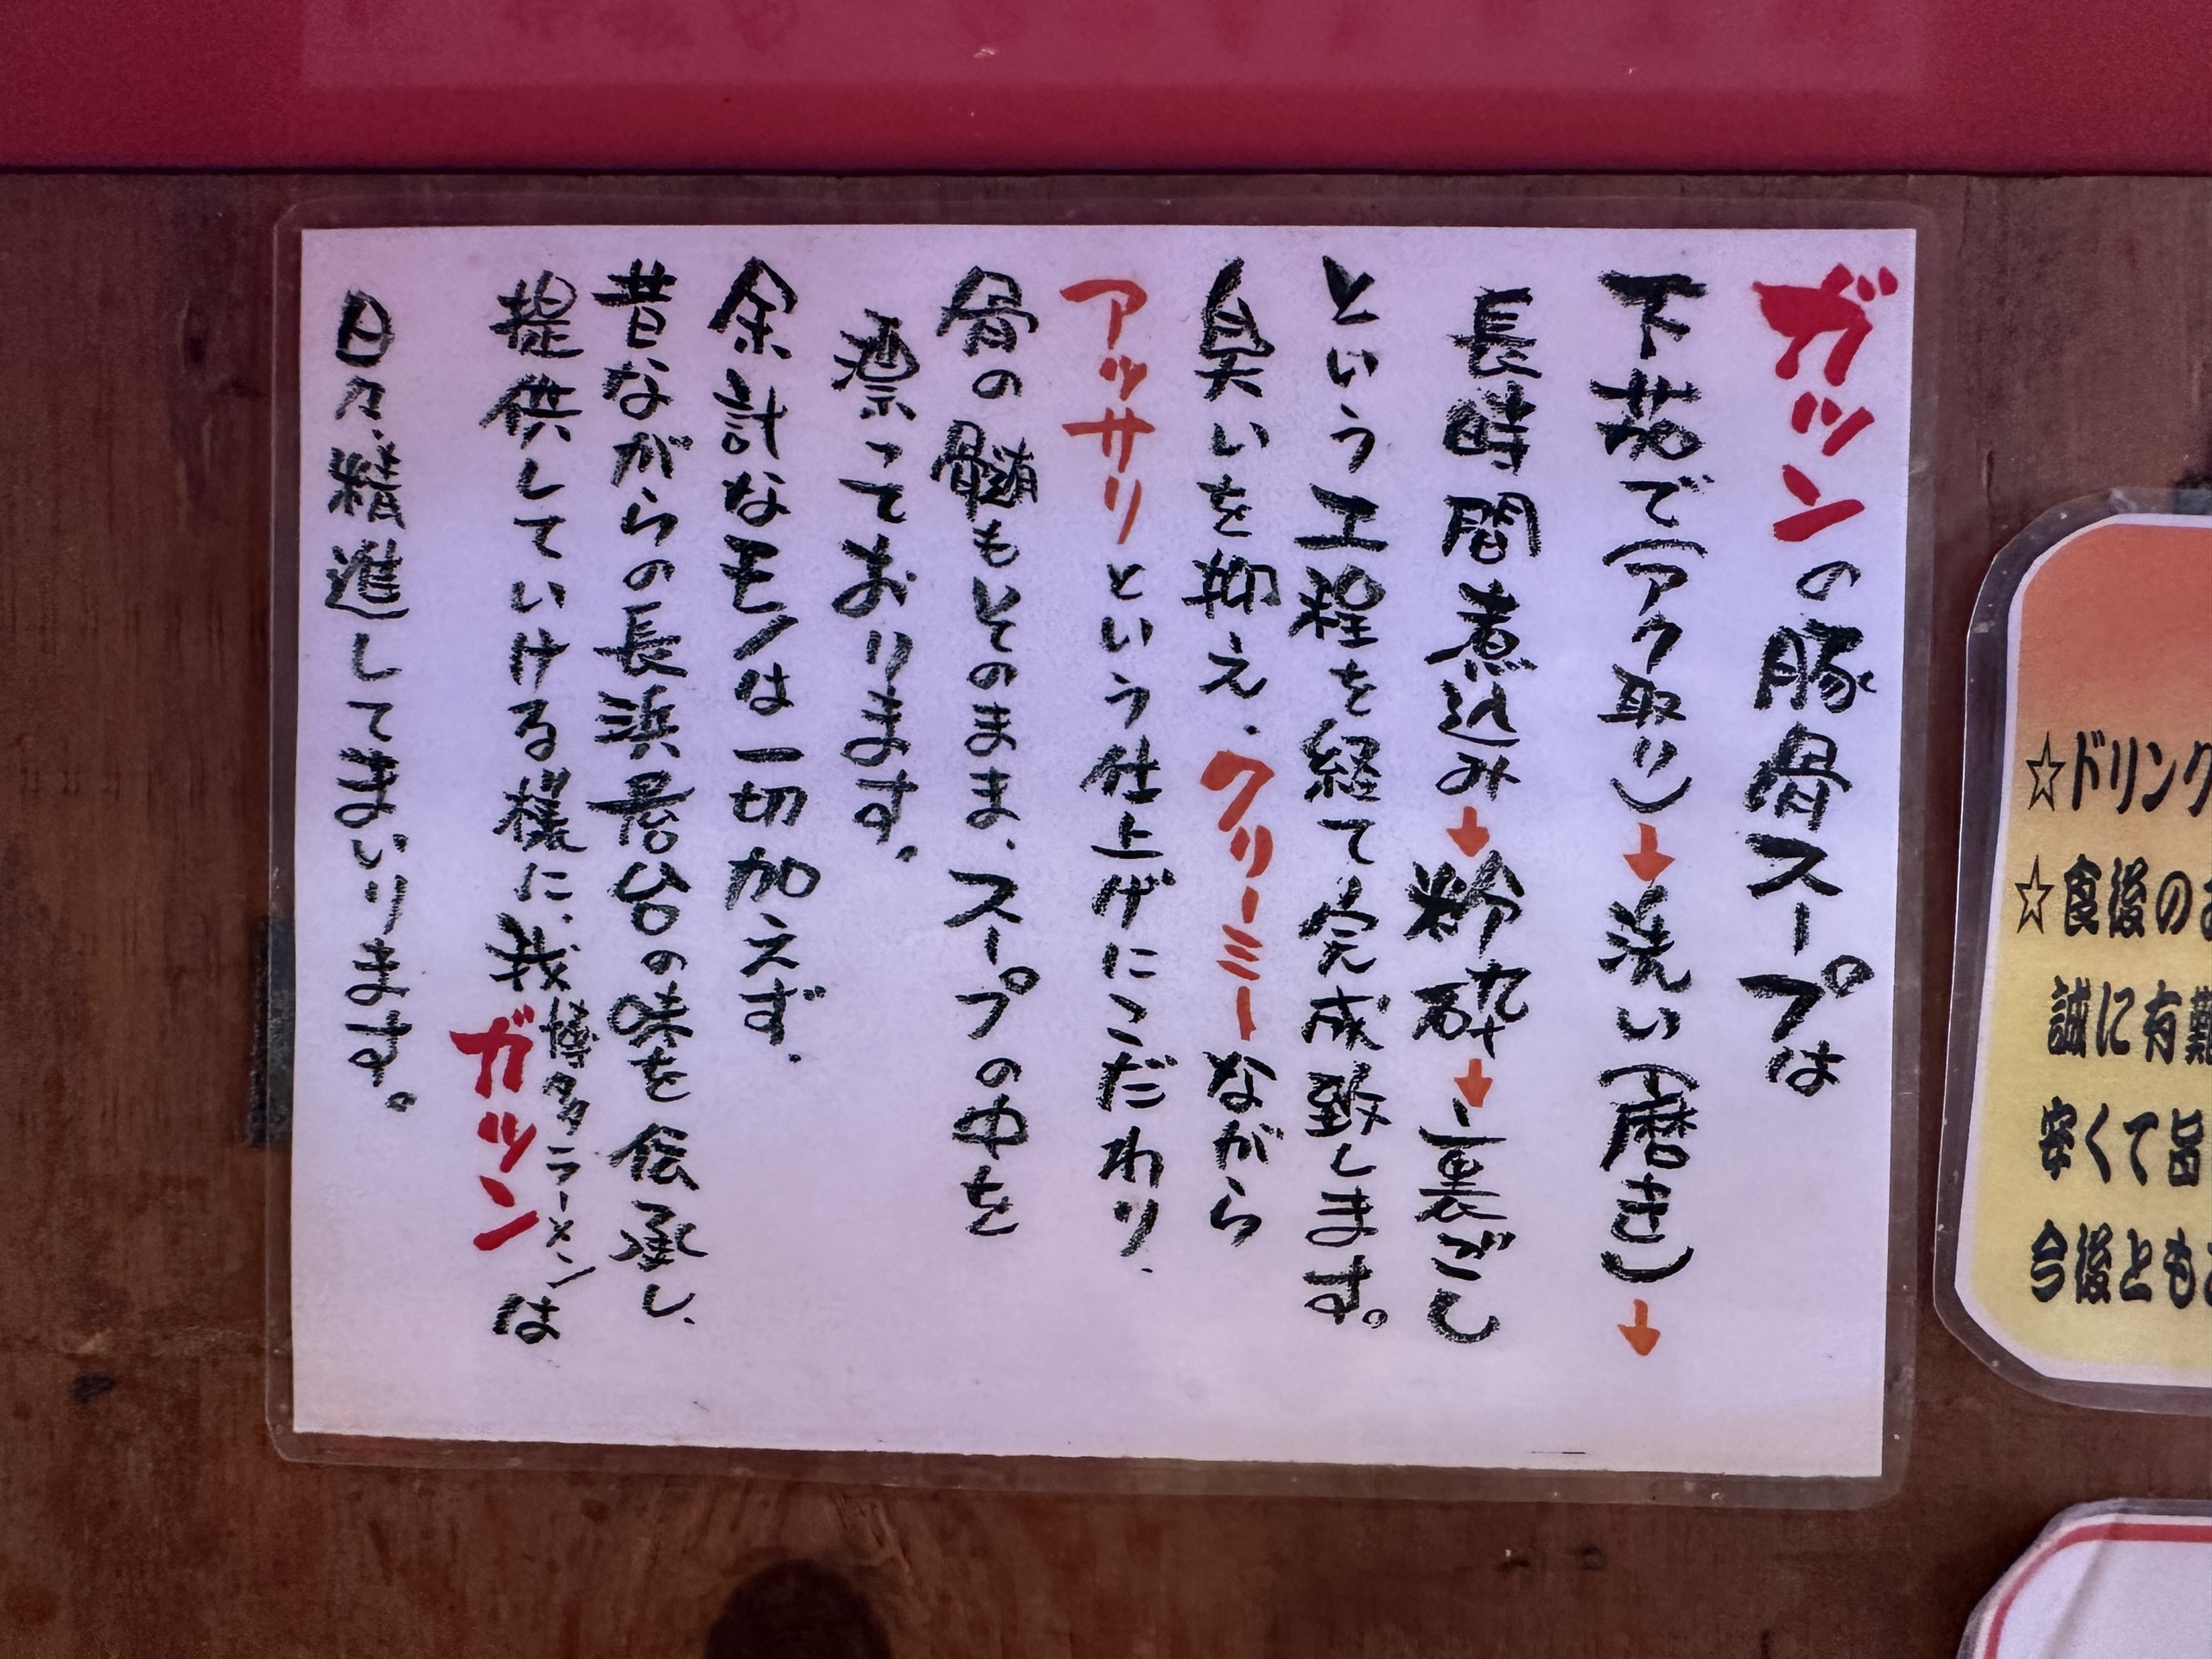 ガツンの豚骨スープは
下茹で(アク取り)↓洗い(磨き)↓
長時間煮込み↓粉砕↓裏ごし
という工程を経て完成致します。
臭いを抑え、クリーミーながら
アッサリという仕上げにこだわり、
骨の髄もそのまま、スープの中を
漂っております。
余計なモノは一切加えず、
昔ながらの長浜屋台の味を伝承し、
提供していける様に、我博多ラーメンガツンは
日々精進してまいります。
☆ドリンク
☆食後の
誠に有難
安くて旨
今後とも